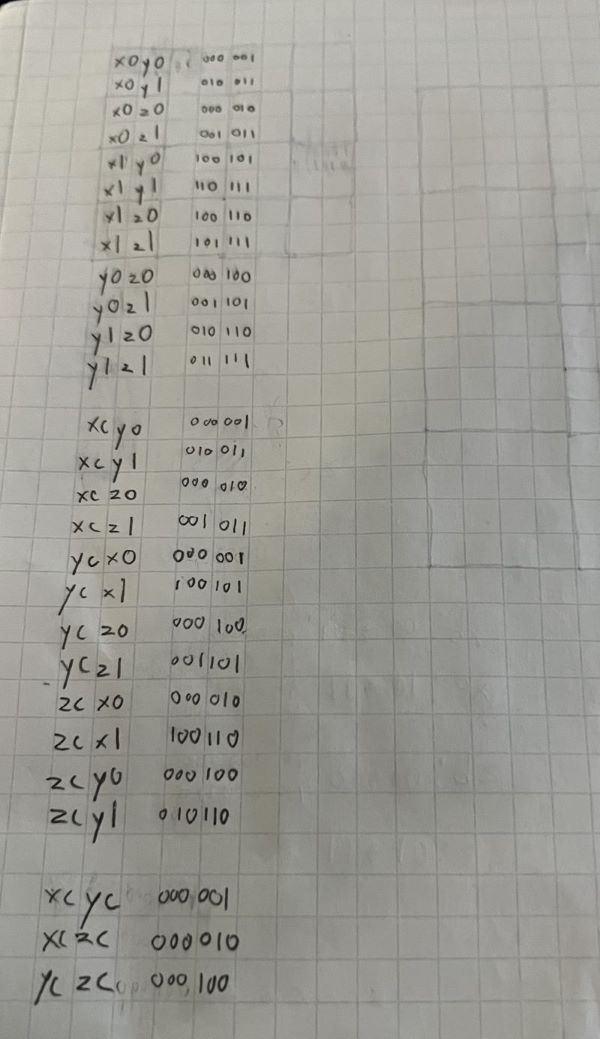 x0y0 000 001
x0y1 010 011
x0z0 000 010
x0z1 001 011
x1y0 100 101
x1y1 110 111
x1z0 100 110
x1z1 101 111
y0z0 000 100
y0z1 001 101
y1z0 010 110
y1z1 011 111
xc y0 000 001
xc y1 010 011
xc z0 000 010
xc z1 001 011
yc x0 000 001
yc x1 100 101
yc z0 000 100
yc z1 001 101
zc x0 000 010
zc x1 100 110
zc y0 000 100
zc y1 010 110
xc yc 000 001
xc zc 000 010
yc zc 000 100